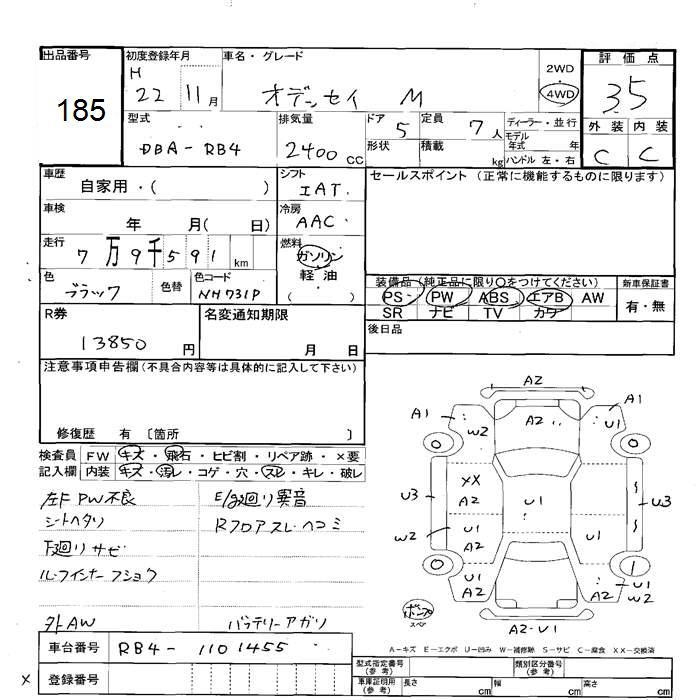 出品番号
185
初度登録年月
H
22 11月
車名・グレード
オデッセイ M
2WD
4WD
評価点
3.5
外装 内装
C C
型式
DBA-RB4
排気量
2400CC
ドア 5
形状
定員 7人
積載 kg
ディーラー・並行
モデル年式 年
ハンドル 左・右
車歴
自家用・( )
シフト
IAT
セールスポイント (正常に機能するものに限ります)
車検
年 月( 日)
冷房
AAC
走行
7万9千591km
燃料
ガソリン
軽油
( )
色
ブラック
色替
色コード
NH731P
装備品(純正品に限り○をつけてください)
PS PW ABS エアB AW
SR ナビ TV カワ
新車保証書
有・無
R券
13850円
名変通知期限
月 日
後日品
注意事項申告欄(不具合内容等は具体的に記入して下さい)
修復歴 有 〔箇所 〕
検査員記入欄
FW キズ・飛石・ヒビ割・リペア跡・×要
内装 キズ・汚レ・コゲ・穴・スレ・キレ・破レ
左F PW不良
シートヘタリ
下廻りサビ
ル-フインナーフショク
外AW
E/g廻り異音
Rフロアスレ・ヘコミ
バッテリーアガリ
A2
A1
W2
A2
U1
A1
XX
A2
U3
U1
U3
W2
U1
A2
U1
U1
A2
A2
U1
W2
A2-U1
A-キズ E-エクボ U-凹み W-補修跡 S-サビ C-腐食 XX-交換済
車台番号
RB4-1101455
× 登録番号
型式指定番号(参考)
類別区分番号(参考)
車庫証明用(参考)
長さ cm
幅 cm
高さ cm